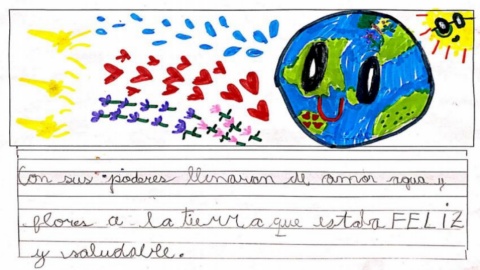 Con sus poderes llenaron de amor agua y
flores a la tierra que estaba FELIZ
y saludable.